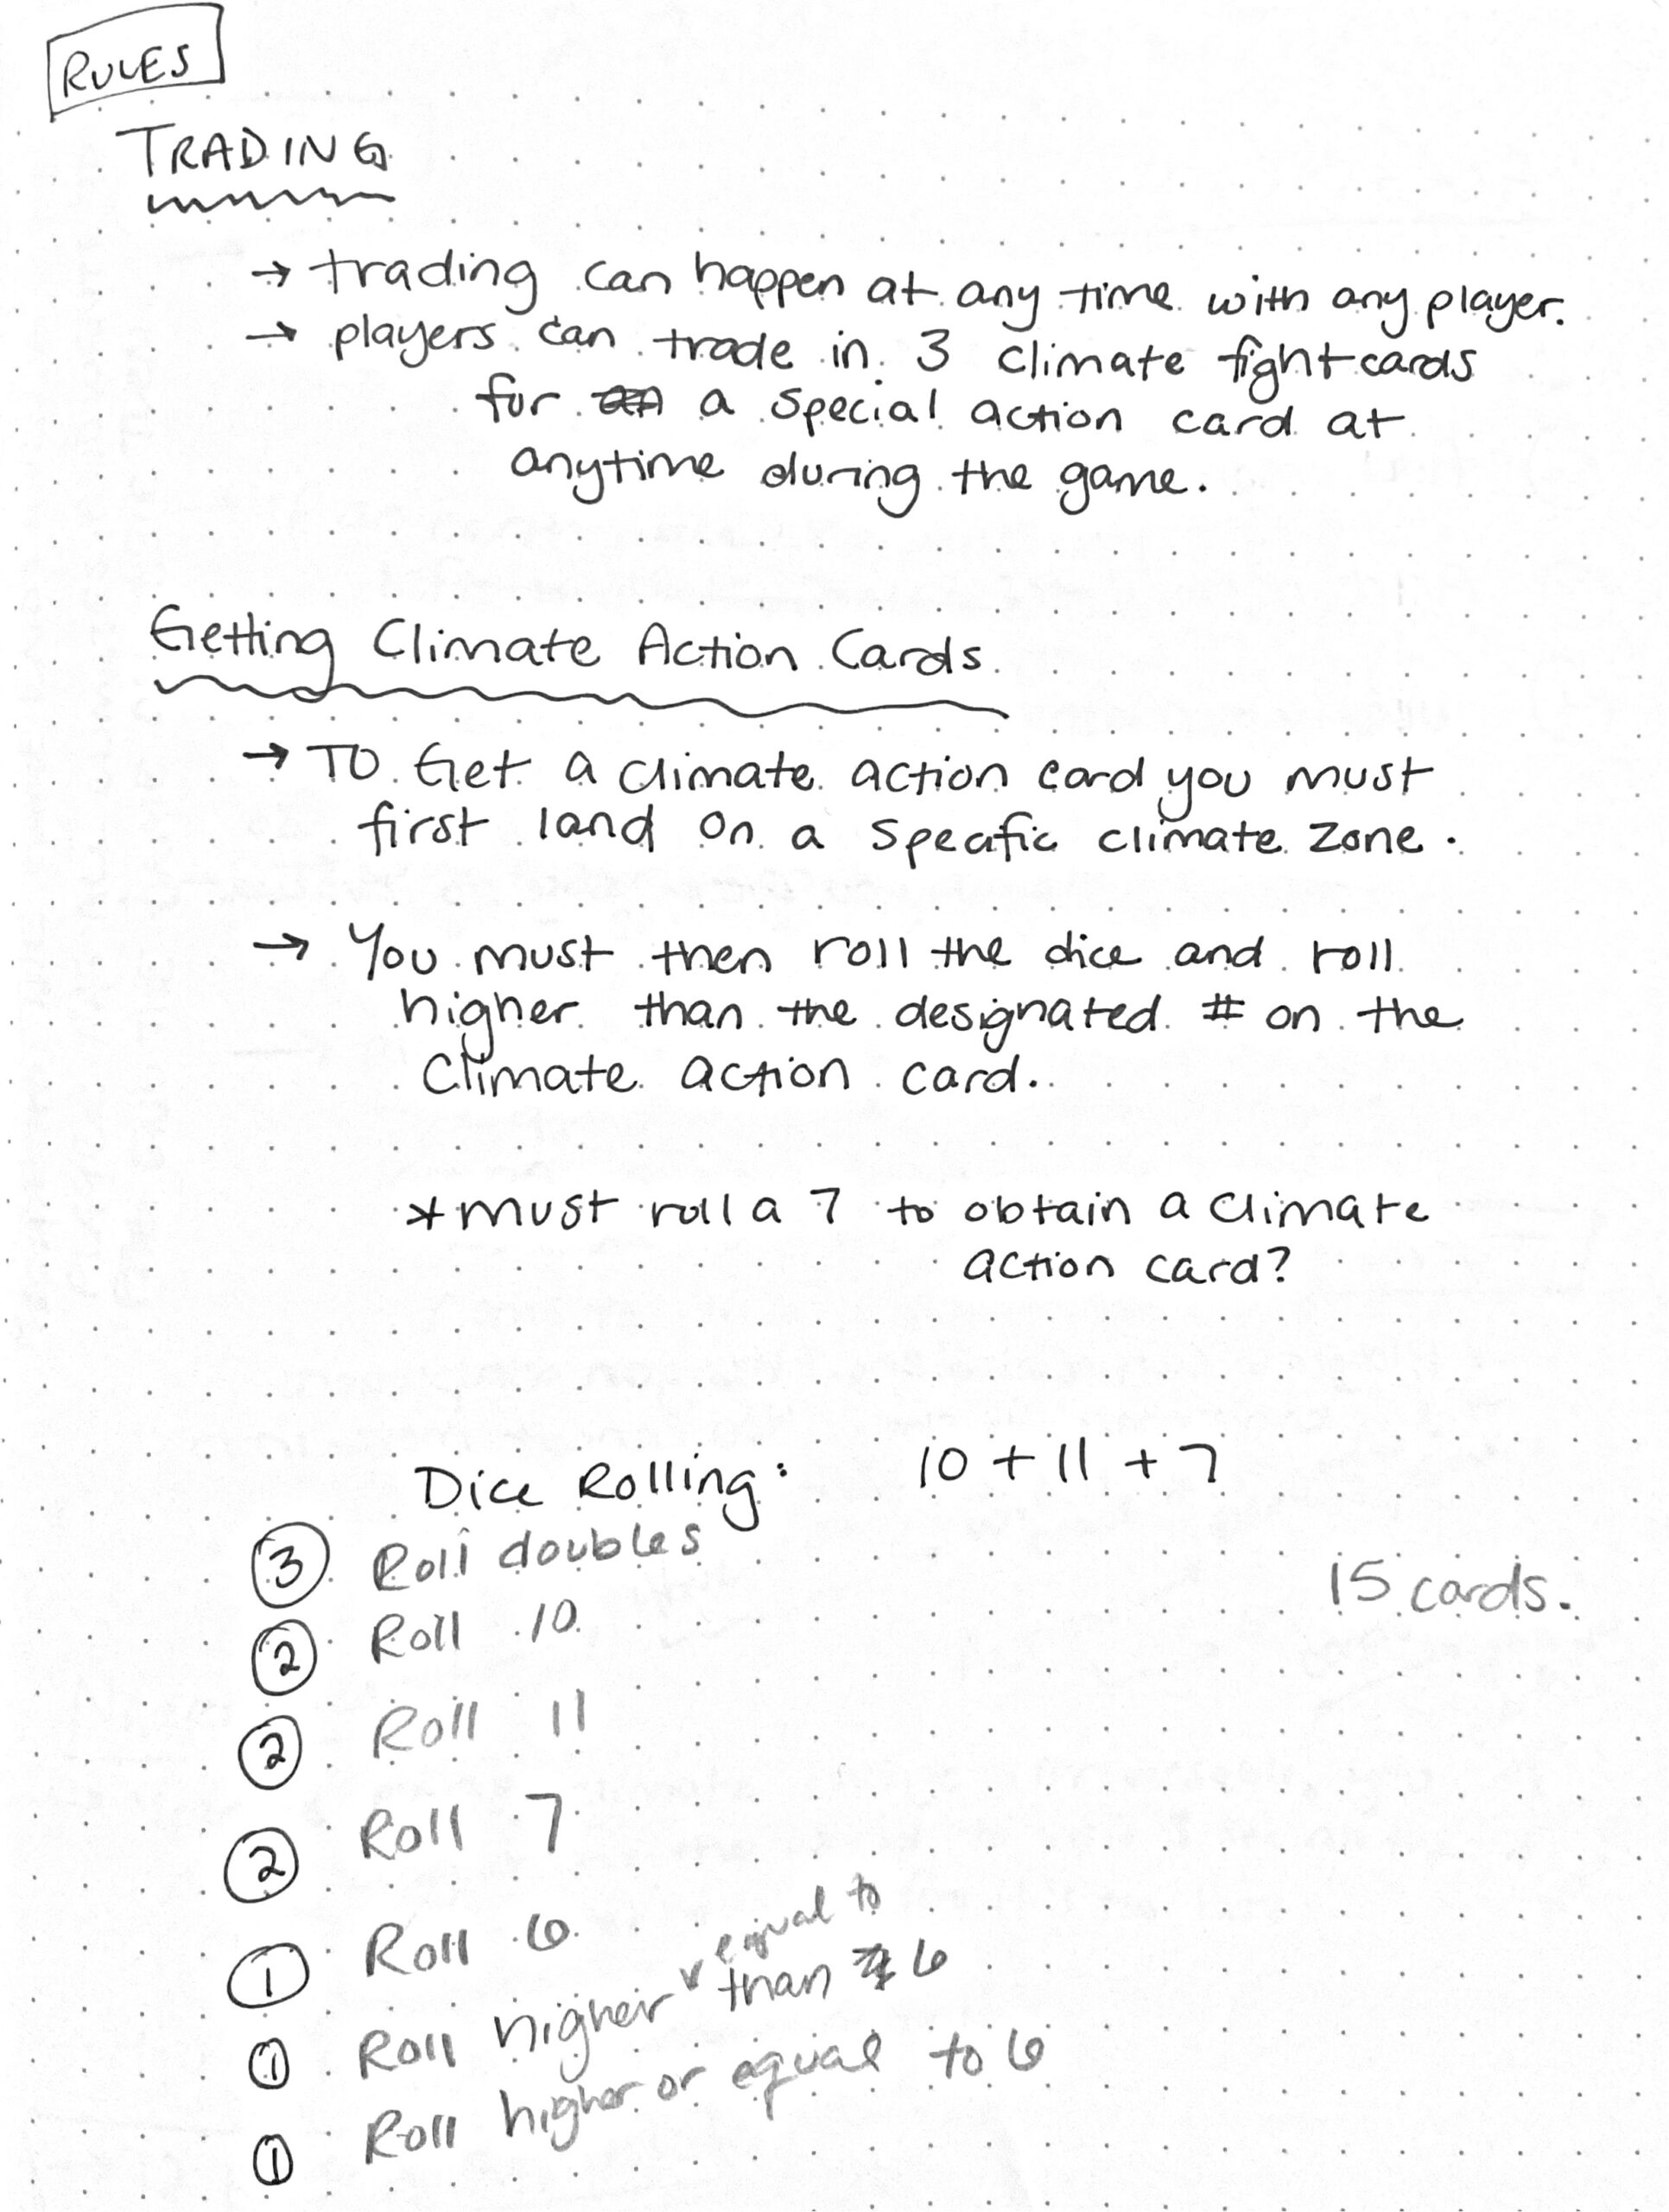 RULES
TRADING
→ trading can happen at any time with any player.
→ players can trade in 3 climate fight cards
for a special action card at
anytime during the game.
Getting Climate Action Cards
→ TO Get a climate action card you must
first land on a specific climate zone.
→ You must then roll the dice and roll
higher than the designated # on the
Climate action card.
*must roll a 7 to obtain a climate
action card?
Dice Rolling: 10 + 11 + 7
3 Roll doubles
15 cards.
2 Roll 10
2 Roll 11
2 Roll 7
1 Roll 6
equal to
1 Roll higher than 6
1 Roll higher or equal to 6